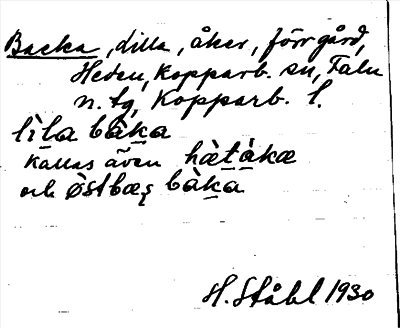 Backa, lilla, åker, förr gård,
Heden, Kopparb. sn, Falu
n. tg, Kopparb. l.
lìla bàka
kallas även hæ̀tàkæ
och østbæȩ bàka
H. Ståhl 1930